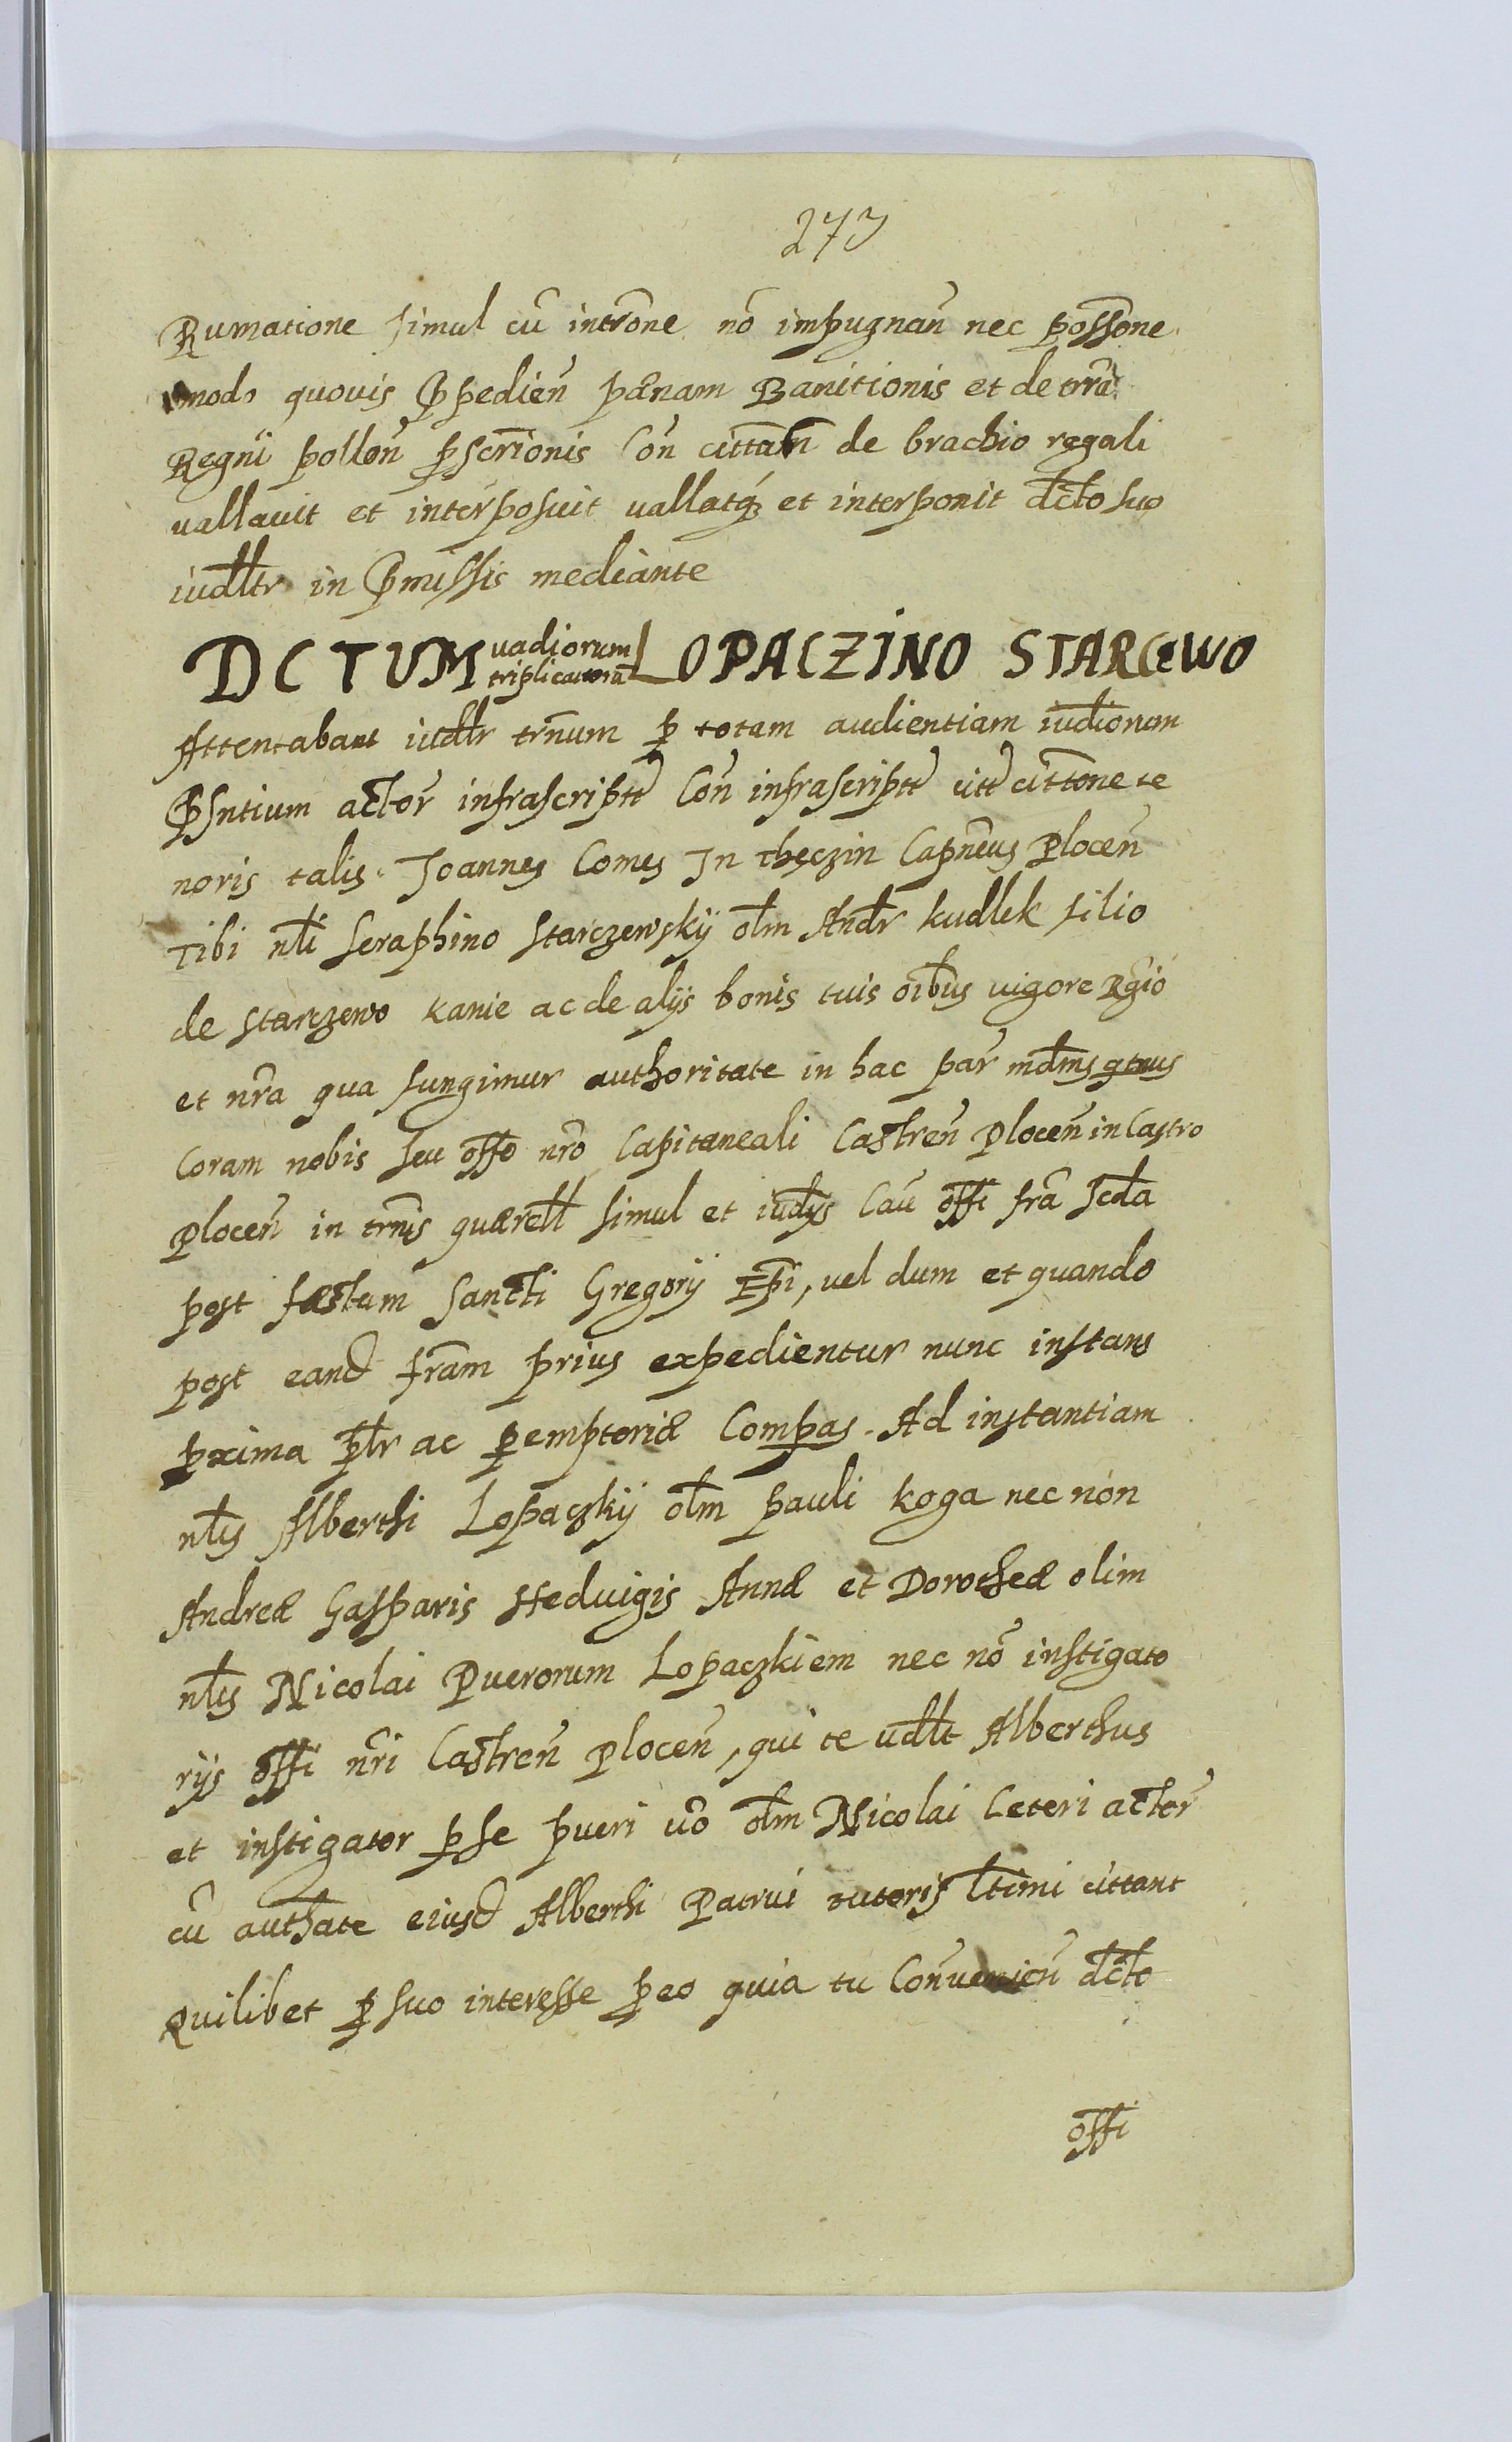 273
Rumatione simul cū intrōne nō impugnañ nec possōne
modo quovis Ppedień pænam Banitionis et de trrā
Regnii polloñ pscrīonis Coñ cittatñ de brachio regali
vallavit et interposuit vallatq; et interponit dcto suo
iudllr in Pmissis mediante
DCTUM vadiorum triplicatorū LOPACZINO STARCEWO
Attentabant iudlr trñum p totam audientiam iudiorum
Psntium actor infrascriptt Coñ infrascriptt citt cittōne te
noris talis. Joannes Comes In Thęczin Capneus Plocen
Tibi nli Seraphino Starczewskÿ olm Andr kudlek filio
de Starczewo kanie ac de alÿs bonis tuis oībus vigore Rgio
et nrā qua fungimur authoritate in hac par mdms qtnus
Coram nobis seu offo nrō Capitaneali Castreñ Ploceñ in Castro
Ploceñ in trnis quærell simul et iudÿs Cau offi frā Scda
post fæstum Sancti Gregorÿ Epi, vel dum et quando
post eand frām prius expedientur nunc instans
pxima plr ac pemptoriæ Compas. Ad instantiam
nlis Alberthi Lopaczkÿ olm Pauli koga nec non
Andreæ Gasparis Hedvigis Annæ et Dorotheæ olim
nlis Nicolai Puerorum Lopaczkiem nec nō instigato
rÿs offi nri Castreñ Ploceñ, qui te udlt Alberthus
et instigator pse pueri vō olm Nicolai Ceteri actor
cū authate eiusd Alberthi Patrui tutoris ltimi cittant
Quilibet p suo interesse peo quia tu Coñvenioñ dcto
offi